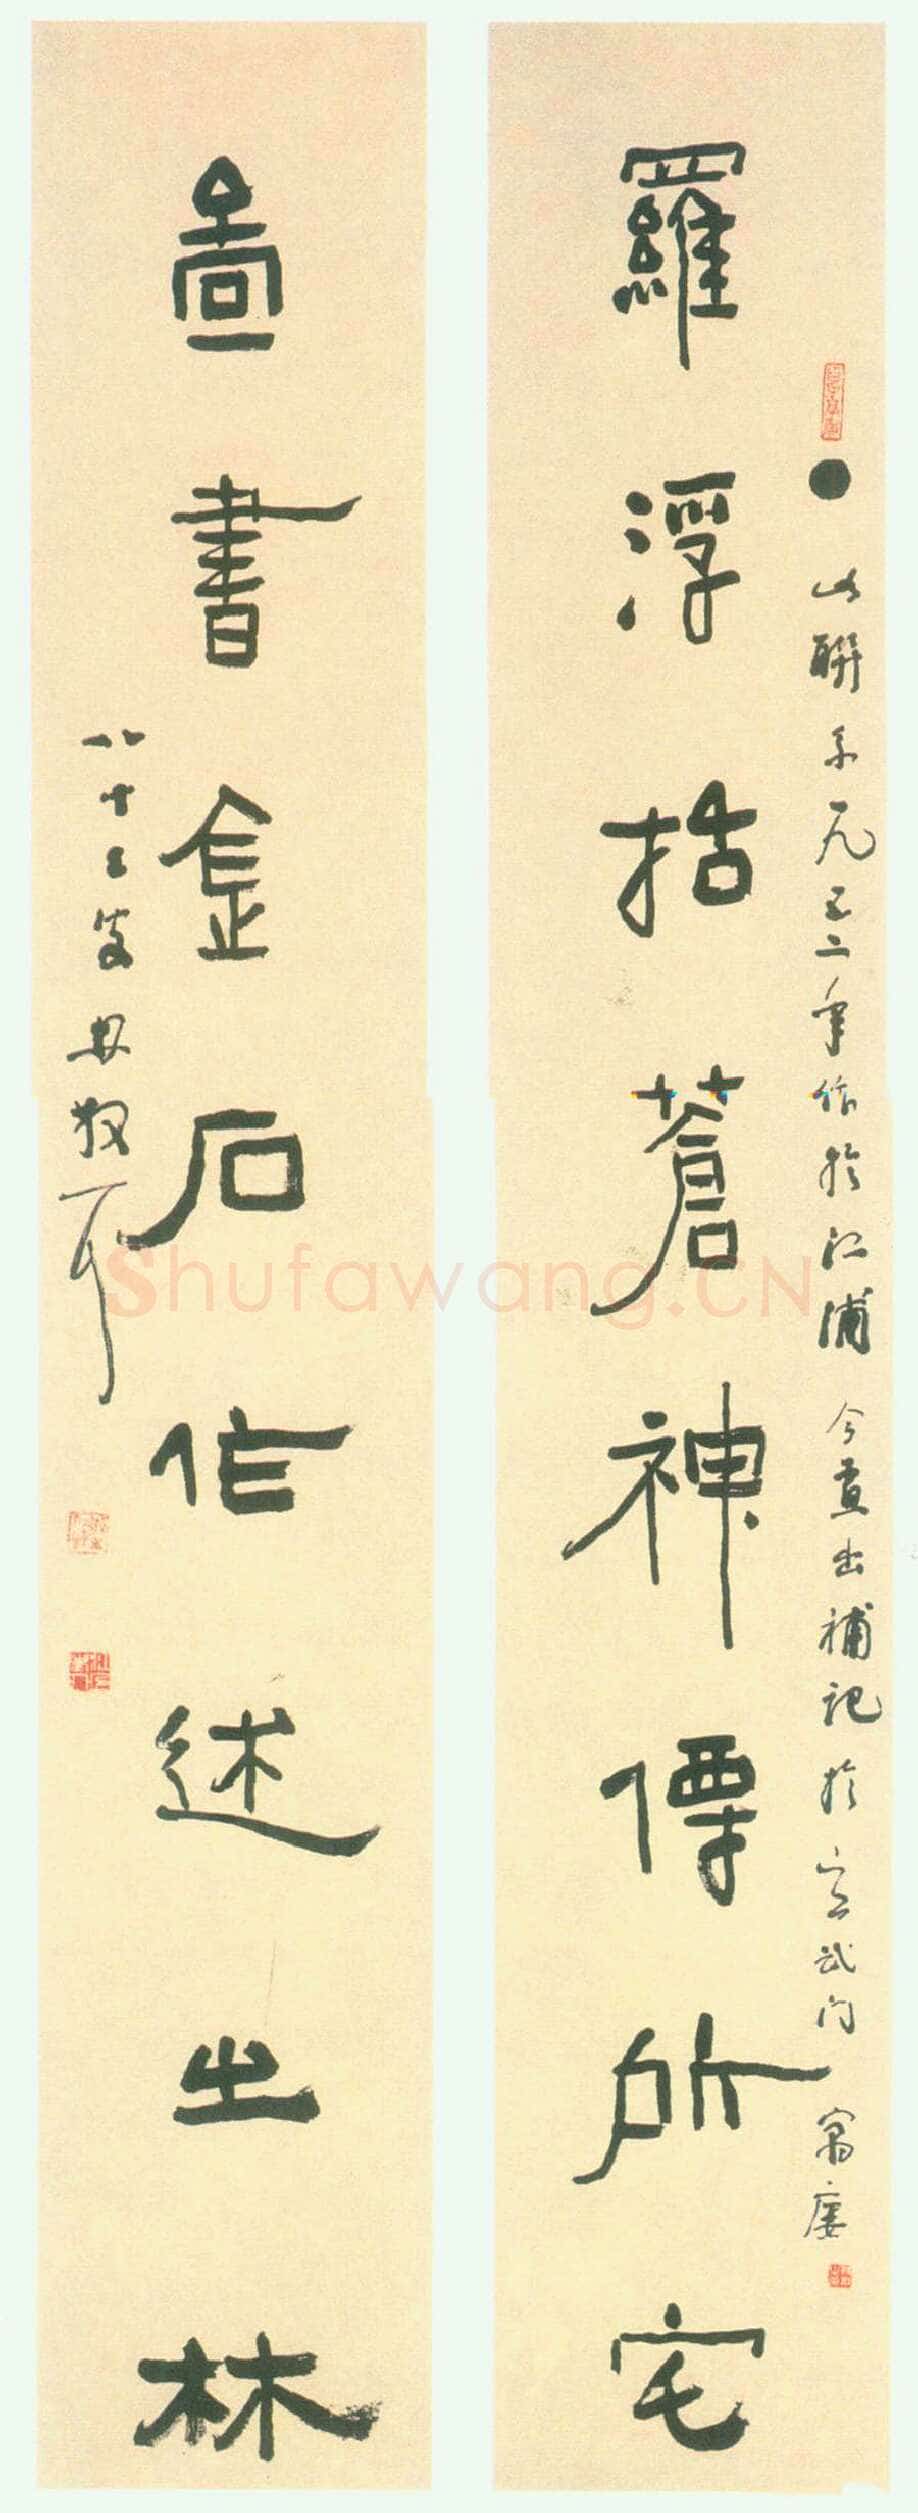 此聯系一九五二年作於江浦 今尋出補記於宣武門 寓廔
羅浮括蒼神僊所宅
圖書金石作述之林
八十三叟林散耳
Shufawang.CN